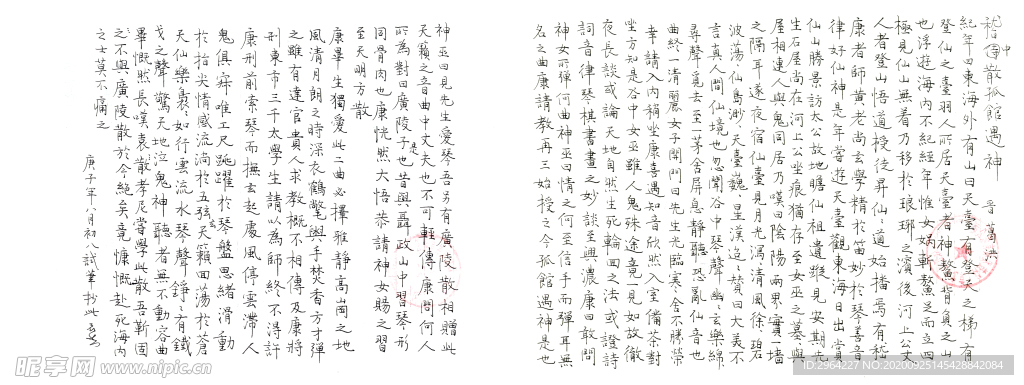 嵇中傳散孤館遇神　晉　葛洪
紀年曰東海外有山曰天臺有登天之梯有
登仙之臺羽人所居天臺者神鰲背負之山
也浮遊海內不紀經年惟女媧斬鰲足而立四
極見仙山無着乃移於琅琊之濱後河上公丈
人者登山悟道授徒昇仙仙道始播焉有嵇
康者師黃老尚玄學精於笛妙於琴善音
律好仙神是年嘗遊天臺觀東海日出賞
仙山勝景訪太公故地瞻仙祖遺蹤見安期先
生石屋尚在河上公坐痕猶存至女巫之墓與
屋相連人與鬼同居乃嘆曰陰陽兩界實一墻
之隔耳遂夜宿仙臺見月光瀉瀉清風徐徐碧
波蕩蕩仙島渺渺天臺巍巍星漢迢迢贊曰大美不
言真人間仙境也忽聞谷中琴聲幽幽玄樂綿綿
尋聲覓去至一茅舍屏息靜聽恐亂仙音也
曲終一清麗女子開門曰先生光臨寒舍不勝榮
幸請入內稍坐康喜遇知音欣然入室備茶對
坐方知是谷中女巫雖人鬼殊途竟一見如故徹
夜長談或論天地自然生死輪回之法或證詩
詞音律琴棋書畫之妙談至興濃康曰敢問
神女所彈何曲神巫曰情之何至信手而彈耳無
名之曲康請教再三始授之今孤館遇神是也
神巫曰見先生愛琴吾另有廣陵散相贈此
天籟之音曲中丈夫也不可輕傳康問何人
所為對曰廣陵子是也昔與聶政山中習琴形
同骨肉也康恍然大悟恭請神女賜之習
至天明方散
康畢生獨愛此二曲必擇雅靜高崗之地
風清月朗之時深衣鶴氅與手焚香方才彈
之雖有達官貴人求教概不相傳及康將
刑東市三千太學生請以為師終不得許
康刑前索琴而撫玄起處風停雲滯人
鬼俱寂唯工尺跳躍於琴盤思緒滑動
於指尖情感流淌於五弦天籟回蕩於蒼
天仙樂裊裊如行雲流水琴聲錚錚有鐵
戈之聲驚天地泣鬼神聽者無不動容曲
畢慨然長嘆袁孝尼嘗學此散吾靳固
之不與廣陵散於今絕矣竟慷慨赴死海內
之士莫不痛之
庚子年八月初八試筆抄此
昵享网 www.nipic.cn
ID:2964227 NO:20200925145428842084